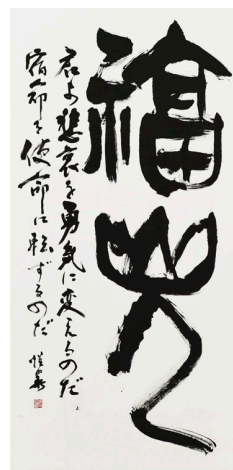 福光
君よ悲哀を勇気に変えるのだ
宿命を使命に転ずるのだ